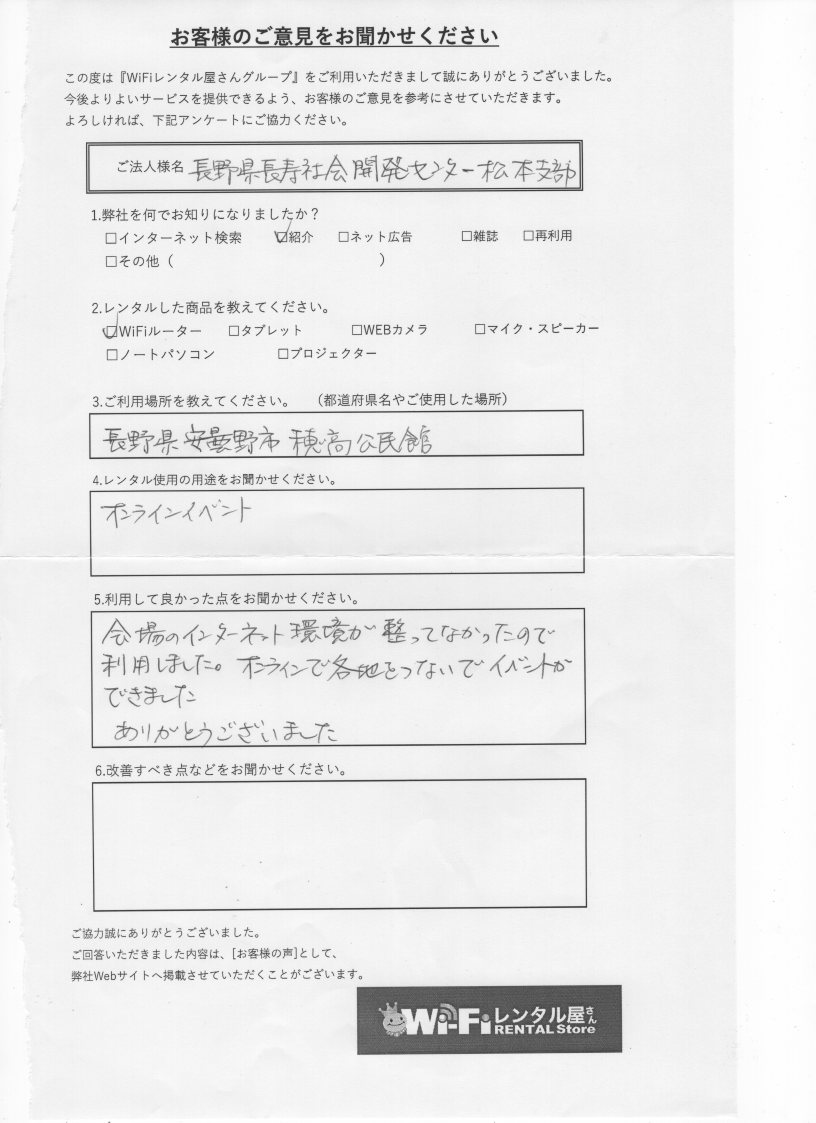 お客様のご意見をお聞かせください
この度は『WiFiレンタル屋さんグループ』をご利用いただきまして誠にありがとうございました。
今後よりよいサービスを提供できるよう、お客様のご意見を参考にさせていただきます。
よろしければ、下記アンケートにご協力ください。
ご法人様名 長野県長寿社会開発センター松本支部
1.弊社を何でお知りになりましたか？
□インターネット検索 ☑紹介 □ネット広告 □雑誌 □再利用
□その他（ ）
2.レンタルした商品を教えてください。
☑WiFiルーター □タブレット □WEBカメラ □マイク・スピーカー
□ノートパソコン □プロジェクター
3.ご利用場所を教えてください。 （都道府県名やご使用した場所）
長野県安曇野市 穂高公民館
4.レンタル使用の用途をお聞かせください。
オンラインイベント
5.利用して良かった点をお聞かせください。
会場のインターネット環境が整ってなかったので
利用しました。オンラインで各地をつないでイベントが
できました
ありがとうございました
6.改善すべき点などをお聞かせください。
ご協力誠にありがとうございました。
ご回答いただきました内容は、[お客様の声]として、
弊社Webサイトへ掲載させていただくことがございます。
Wi-Fiレンタル屋さん
RENTAL Store